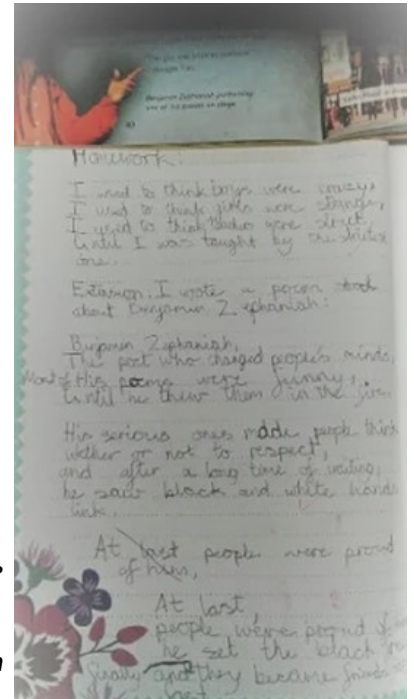 Benjamin Zephaniah performing
one of his poems on stage.
Homework:
I used to think boys were crazy,
I used to think girls were strange,
I used to think teachers were strict,
Until I was taught by the strictest
one.
Extension: I wrote a poem
about Benjamin Zephaniah:
Benjamin Zephaniah,
The poet who changed people's minds,
Most of His poems were funny,
Until he threw them in the fire.
His serious ones made people think
wether or not to respect,
and after a long time of waiting,
he saw black and white hands
link.
At last people were proud
of him,
At last,
people were proud of
he set the black
finally and they became friends